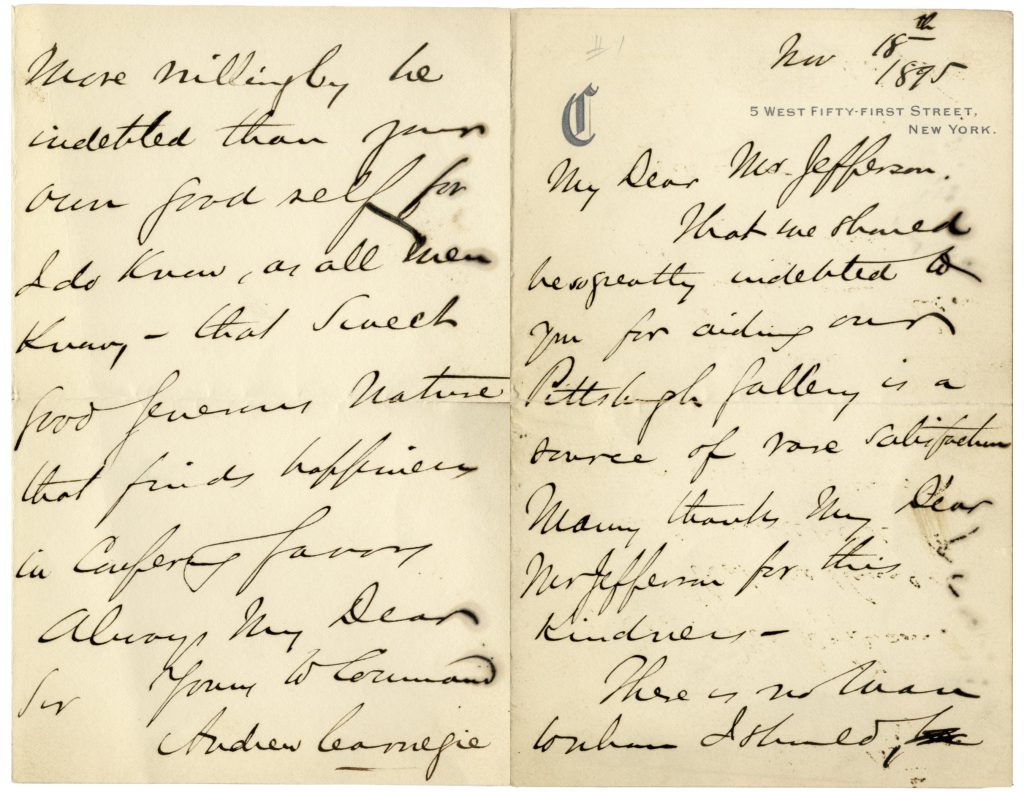 #1
Nov 18th
1895
C
5 WEST FIFTY-FIRST STREET,
NEW YORK.
My Dear Mr. Jefferson.
That we should
be so greatly indebted to
you for aiding our
Pittsburgh Gallery is a
source of rare satisfaction
Many thanks My Dear
Mr Jefferson for this
Kindness —
There is no man
to whom I should,
More willingly be
indebted than your
own good self for
I do Know, as all men
Know, — that Sweet
good generous Nature
that finds happiness
in Confering favors
Always My Dear
Sir Yours to Command
Andrew Carnegie